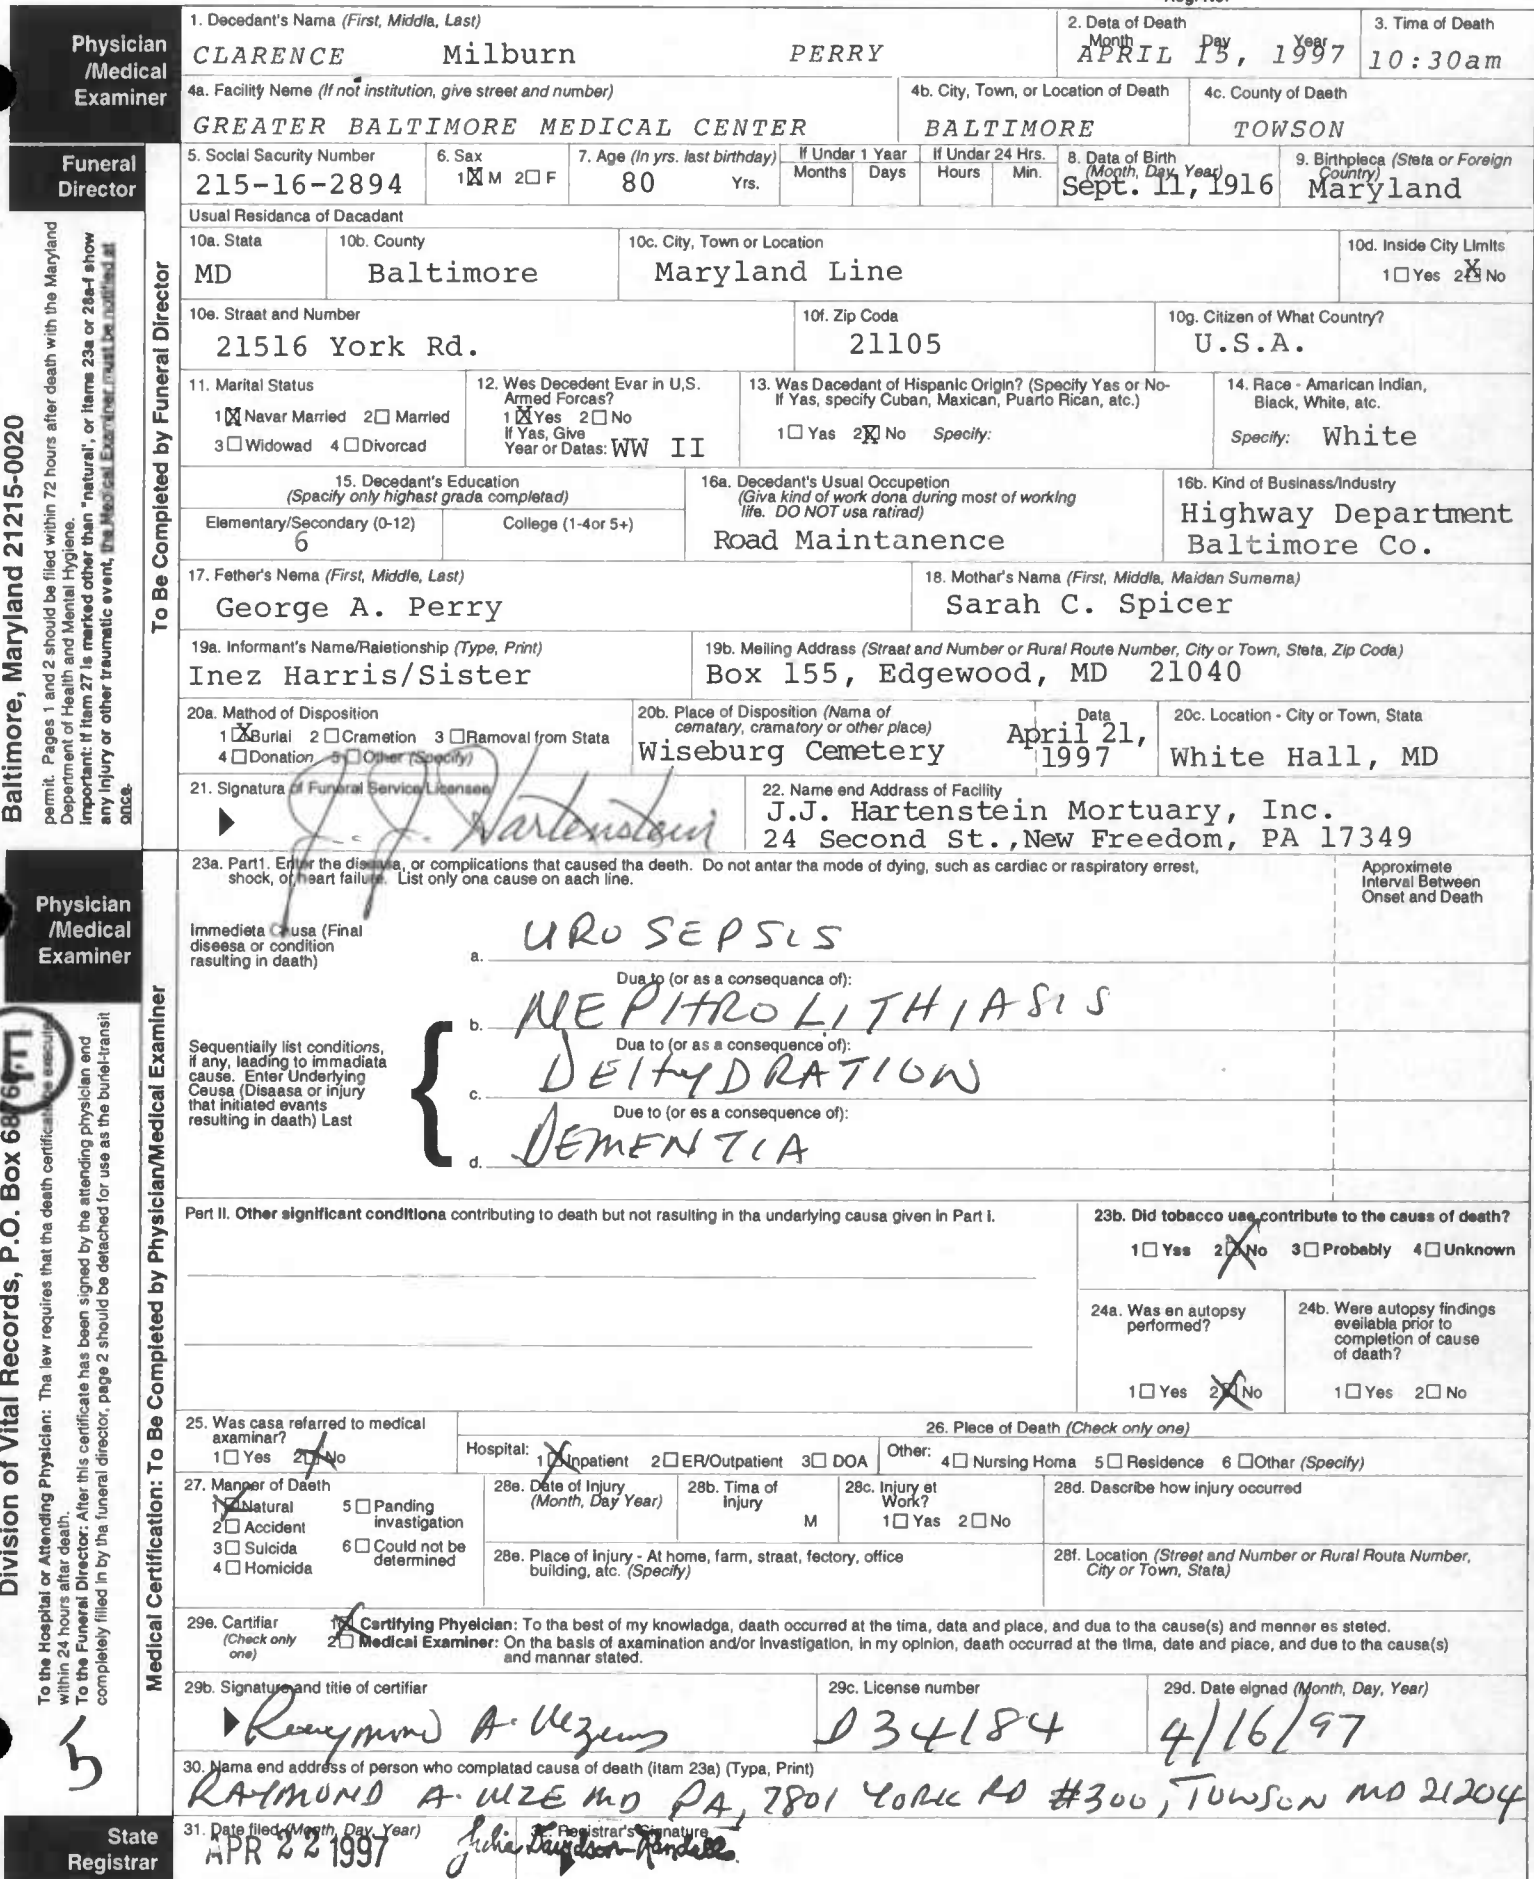 Physician
/Medical
Examiner
1. Decedant's Name (First, Middla, Last)
CLARENCE Milburn PERRY
2. Deta of Death
Month Day Year
APRIL 15, 1997
3. Tima of Death
10:30am
4a. Facility Neme (If not institution, give street and number)
GREATER BALTIMORE MEDICAL CENTER
4b. City, Town, or Location of Death
BALTIMORE
4c. County of Daeth
TOWSON
Funeral
Director
5. Social Sacurity Number
215-16-2894
6. Sax
1☒ M 2☐ F
7. Age (In yrs. last birthday)
80 Yrs.
If Undar 1 Yaar
Months Days
If Under 24 Hrs.
Hours Min.
8. Data of Birth
(Month, Day, Year)
Sept. 11, 1916
9. Birthpleca (Steta or Foreign
Country)
Maryland
Usual Residanca of Dacadant
10a. Stata
MD
10b. County
Baltimore
10c. City, Town or Location
Maryland Line
10d. Inside City Limits
1☐Yes 2☒No
10e. Straat and Number
21516 York Rd.
10f. Zip Coda
21105
10g. Citizen of What Country?
U.S.A.
11. Marital Status
1☒Navar Married 2☐ Married
3☐Widowad 4☐Divorcad
12. Wes Decedent Evar in U,S.
Armed Forcas?
1☒Yes 2☐No
If Yas, Give
Year or Datas: WW II
13. Was Dacedant of Hispanic Origin? (Specify Yas or No-
If Yas, specify Cuban, Maxican, Puarto Rican, atc.)
1☐Yas 2☒No Specify:
14. Race - Amarican Indian,
Black, White, atc.
Specify: White
15. Decedant's Education
(Spacify only highast grada completad)
Elementary/Secondary (0-12)
6
College (1-4or 5+)
16a. Decedant's Usual Occupetion
(Giva kind of work dona during most of working
life. DO NOT usa ratirad)
Road Maintanence
16b. Kind of Businass/Industry
Highway Department
Baltimore Co.
17. Fether's Nema (First, Middle, Last)
George A. Perry
18. Mothar's Nama (First, Middla, Maidan Sumema)
Sarah C. Spicer
19a. Informant's Name/Raietionship (Type, Print)
Inez Harris/Sister
19b. Meiling Address (Straat and Number or Rural Route Number, City or Town, Steta, Zip Coda)
Box 155, Edgewood, MD 21040
20a. Mathod of Disposition
1☒Burial 2☐Crametion 3☐Ramoval from Stata
4☐Donation 5☐Other (Specify)
20b. Place of Disposition (Nama of
cematary, cramatory or other place)
Wiseburg Cemetery
Data
April 21,
1997
20c. Location - City or Town, Stata
White Hall, MD
21. Signatura of Funeral Service Licensee
J. J. Hartenstein
22. Name end Address of Facility
J.J. Hartenstein Mortuary, Inc.
24 Second St.,New Freedom, PA 17349
To Be Completed by Funeral Director
Baltimore, Maryland 21215-0020
permit. Pages 1 and 2 should be filed within 72 hours after death with the Maryland
Depertment of Health and Mental Hygiene.
Important: If Itam 27 is marked other than "natural', or itams 23a or 28a-f show
any injury or other traumatic event, the Medical Examiner must be notified at
once.
Physician
/Medical
Examiner
23a. Part1. Enter the disease, or complications that caused tha deeth. Do not antar tha mode of dying, such as cardiac or raspiratory errest,
shock, or heart failure. List only ona cause on aach line.
Approximete
Interval Between
Onset and Death
Immedieta Causa (Final
diseesa or condition
rasulting in daath)
a. UROSEPSIS
Dua to (or as a consequanca of):
b. NEPHROLITHIASIS
Dua to (or as a consequence of):
c. DEHYDRATION
Due to (or es a consequence of):
d. DEMENTIA
Sequentially list conditions,
if any, laading to immadiata
cause. Enter Underlying
Ceusa (Disaasa or injury
that initiated evants
resulting in daath) Last
Pert II. Other significant conditiona contributing to death but not rasulting in tha undarlying causa given in Part i.
23b. Did tobacco uae contribute to the causs of death?
1☐Yss 2☒No 3☐Probably 4☐Unknown
24a. Was en autopsy
performed?
1☐Yes 2☒No
24b. Were autopsy findings
eveilabla prior to
completion of cause
of daath?
1☐Yes 2☐No
25. Was casa rafarred to medical
axaminar?
1☐Yes 2☒No
26. Plece of Death (Check only one)
Hospital: 1☒Inpatient 2☐ER/Outpatient 3☐ DOA
Other: 4☐Nursing Homa 5☐Residence 6☐Othar (Specify)
27. Manner of Daeth
1☒Natural
2☐ Accident
3☐ Suicida
4☐ Homicida
5☐Panding
invastigation
6☐Could not be
determined
28e. Date of Injury
(Month, Day Year)
28b. Tima of
Injury
M
28c. Injury et
Work?
1☐Yas 2☐No
28d. Dascribe how injury occurred
28e. Place of Injury - At home, farm, straat, fectory, office
building, atc. (Specify)
28f. Location (Street and Number or Rural Routa Number,
City or Town, Stata)
29e. Cartifiar
(Check only
one)
1☒ Cartifying Phyeician: To tha best of my knowladga, daath occurred at the tima, data and placa, and dua to tha cause(s) and menner es steted.
2☐ Medical Examiner: On tha basis of axamination and/or invastigation, in my opinion, daath occurrad at the tima, date and piace, and due to tha causa(s)
and mannar stated.
29b. Signature and titie of certifiar
29c. License number
D34184
29d. Date eignad (Month, Day, Year)
4/16/97
30. Nama end address of person who complatad causa of death (itam 23a) (Typa, Print)
RAYMOND A. MD PA, 7801 YORK RD #300, TOWSON MD 21204
Medical Certification: To Be Completed by Physician/Medical Examiner
Division of Vital Records, P.O. Box
To the Hospital or Attending Physician: Tha lew requires that tha death certificate be executed
within 24 hours aftar death.
To the Funeral Director: After this certificate has been signed by the attending physician end
completely filled in by tha funeral director, page 2 should be detached for use as the buriel-transit
5
State
Registrar
31. Date filed (Month, Day, Year)
APR 22 1997
32. Registrar's Signature
Julia Davidson-Randall